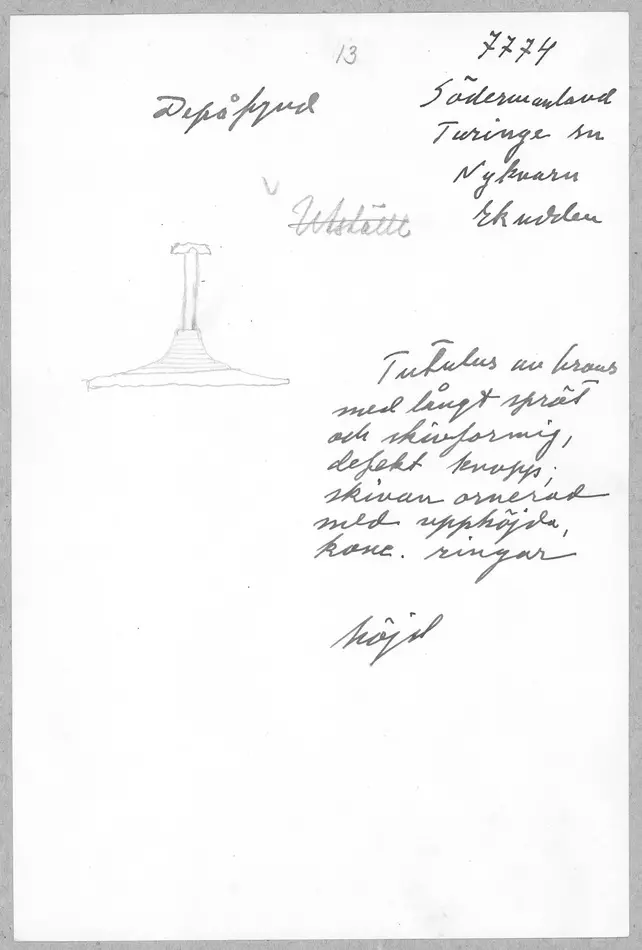 13
7774
Depåfynd
Södermanland
Turinge sn
Nykvarn
Ekudden
Utställt
Tutulus av brons
med långt spröt
och skivformig,
defekt knopp;
skivan ornerad
med upphöjda,
konc. ringar
höjd